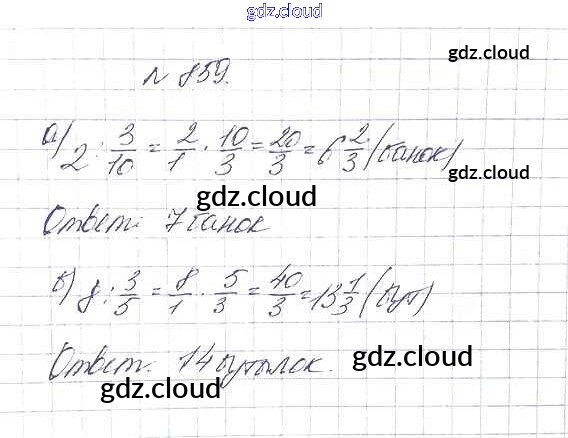 gdz.cloud
gdz.cloud
№ 859.
а) 2 : 3/10 = 2/1 · 10/3 = 20/3 = 6 2/3 (банок)
gdz.cloud
gdz.cloud
Ответ: 7 банок
б) 8 : 3/5 = 8/1 · 5/3 = 40/3 = 13 1/3 (бут)
gdz.cloud
Ответ: 14 бутылок.
gdz.cloud
gdz.cloud